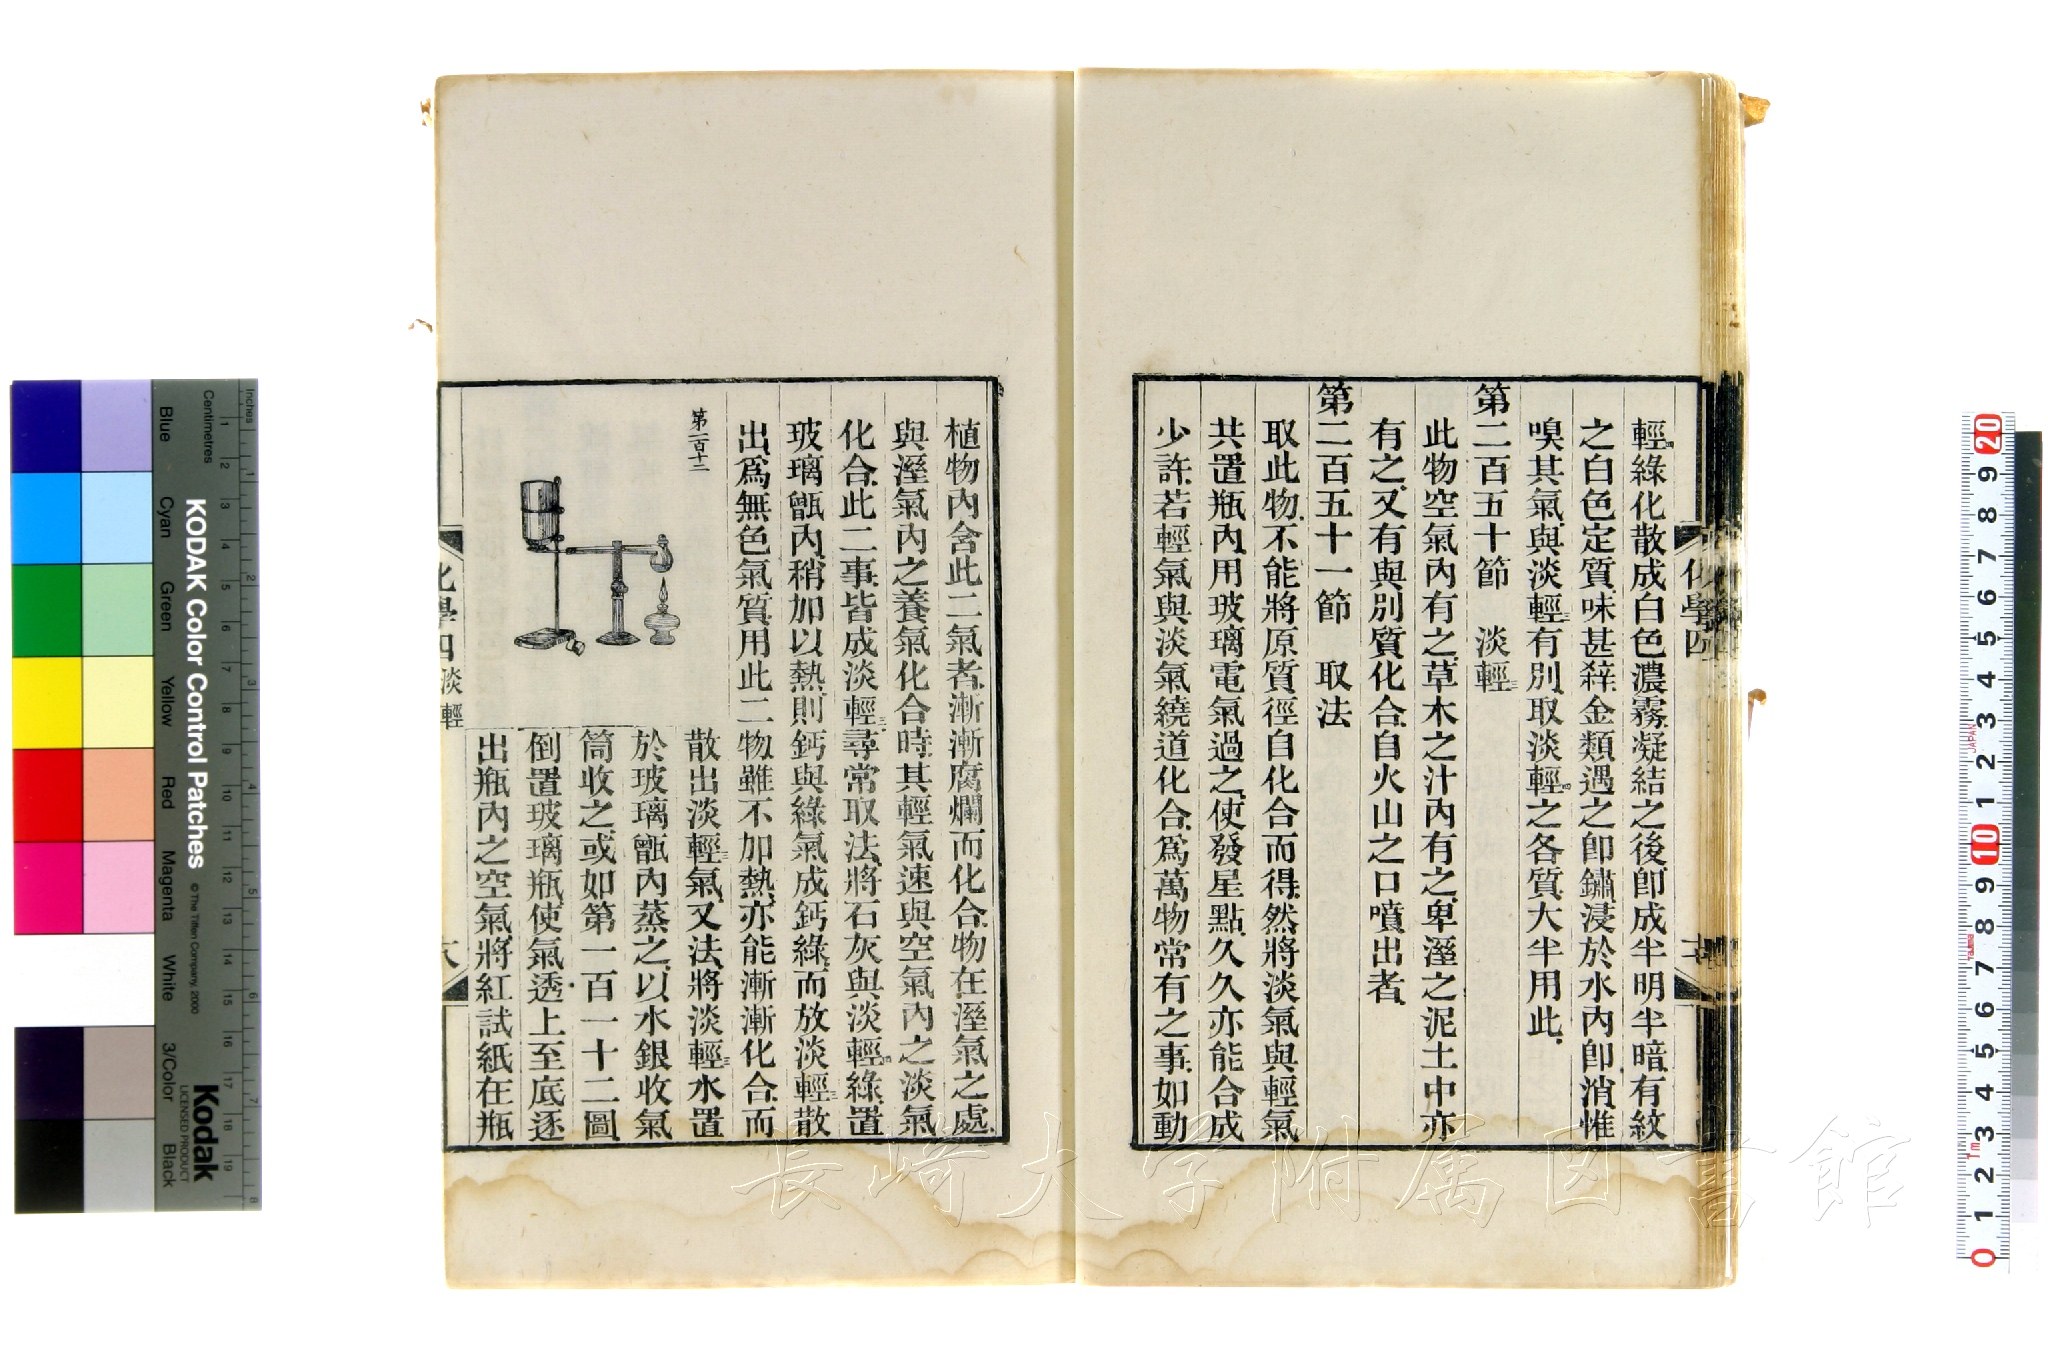 輕綠化散成白色濃霧凝結之後卽成半明半暗有紋
之白色定質味甚辢金類遇之卽鏽浸於水內卽消惟
嗅其氣與淡輕三有別取淡輕四之各質大半用此
第二百五十節 淡輕三
此物空氣內有之草木之汁內有之卑溼之泥土中亦
有之又有與別質化合自火山之口噴出者
第二百五十一節 取法
取此物不能將原質徑自化合而得然將淡氣與輕氣
共置瓶內用玻璃電氣過之使發星點久久亦能合成
少許若輕氣與淡氣繞道化合爲萬物常有之事如動
植物內含此二氣者漸漸腐爛而化合物在溼氣之處
與溼氣內之養氣化合時其輕氣速與空氣內之淡氣
化合此二事皆成淡輕三尋常取法將石灰與淡輕四綠置
玻璃甑內稍加以熱則鈣與綠氣成鈣綠而放淡輕三散
出爲無色氣質用此二物雖不加熱亦能漸漸化合而
第一百十二
散出淡輕三氣又法將淡輕三水置
於玻璃甑內蒸之以水銀收氣
筒收之或如第一百一十二圖
倒置玻璃瓶使氣透上至底逐
出瓶內之空氣將紅試紙在瓶
化學四 淡輕
化學四
長崎大学附属図書館
KODAK Color Control Patches
© The Tiffen Company, 2000
Kodak
LICENSED PRODUCT
Inches
Centimetres
Blue
Cyan
Green
Yellow
Red
Magenta
White
3/Color
Black
1 2 3 4 5 6 7 8
1 2 3 4 5 6 7 8 9 10 11 12 13 14 15 16 17 18 19
20 9 8 7 6 5 4 3 2 1 10 9 8 7 6 5 4 3 2 1 0